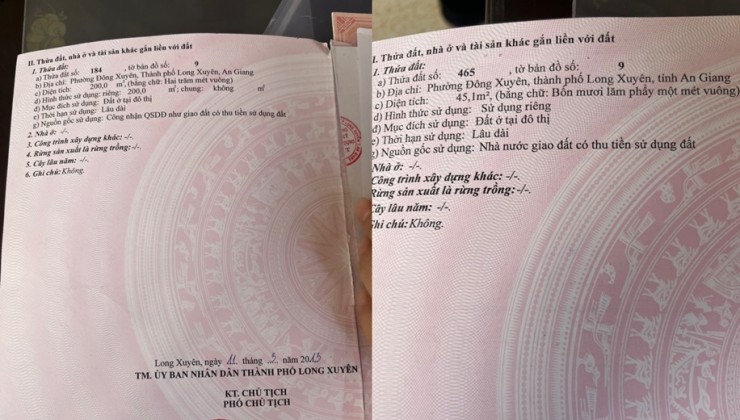 II. Thửa đất, nhà ở và tài sản khác gắn liền với đất
1. Thửa đất:
a) Thửa đất số: 184 , tờ bản đồ số: 9
b) Địa chỉ: Phường Đông Xuyên, Thành phố Long Xuyên, An Giang
c) Diện tích: 200,0 m², (bằng chữ: Hai trăm mét vuông)
d) Hình thức sử dụng: riêng: 200,0 m²; chung: không m²
đ) Mục đích sử dụng: Đất ở tại đô thị
e) Thời hạn sử dụng: Lâu dài
g) Nguồn gốc sử dụng: Công nhận QSDĐ như giao đất có thu tiền sử dụng đất
2. Nhà ở: -/-
3. Công trình xây dựng khác: -/-
4. Rừng sản xuất là rừng trồng: -/-
5. Cây lâu năm: -/-
6. Ghi chú: Không.
Long Xuyên, ngày 11 tháng 2 năm 2013
TM. ỦY BAN NHÂN DÂN THÀNH PHỐ LONG XUYÊN
KT. CHỦ TỊCH
PHÓ CHỦ TỊCH
I. Thửa đất, nhà ở và tài sản khác gắn liền với đất
1. Thửa đất:
a) Thửa đất số: 465 , tờ bản đồ số: 9
b) Địa chỉ: Phường Đông Xuyên, thành phố Long Xuyên, tỉnh An Giang
c) Diện tích: 45,1m², (bằng chữ: Bốn mươi lăm phẩy một mét vuông)
d) Hình thức sử dụng: Sử dụng riêng
đ) Mục đích sử dụng: Đất ở tại đô thị
e) Thời hạn sử dụng: Lâu dài
g) Nguồn gốc sử dụng: Nhà nước giao đất có thu tiền sử dụng đất
Nhà ở: -/-.
Công trình xây dựng khác: -/-.
Rừng sản xuất là rừng trồng:-/-.
Cây lâu năm: -/-.
Ghi chú: Không.